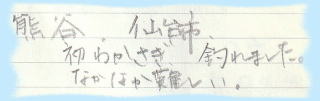 熊谷. 仙錦.
初わかさぎ 釣れました。
なかなか難しい。